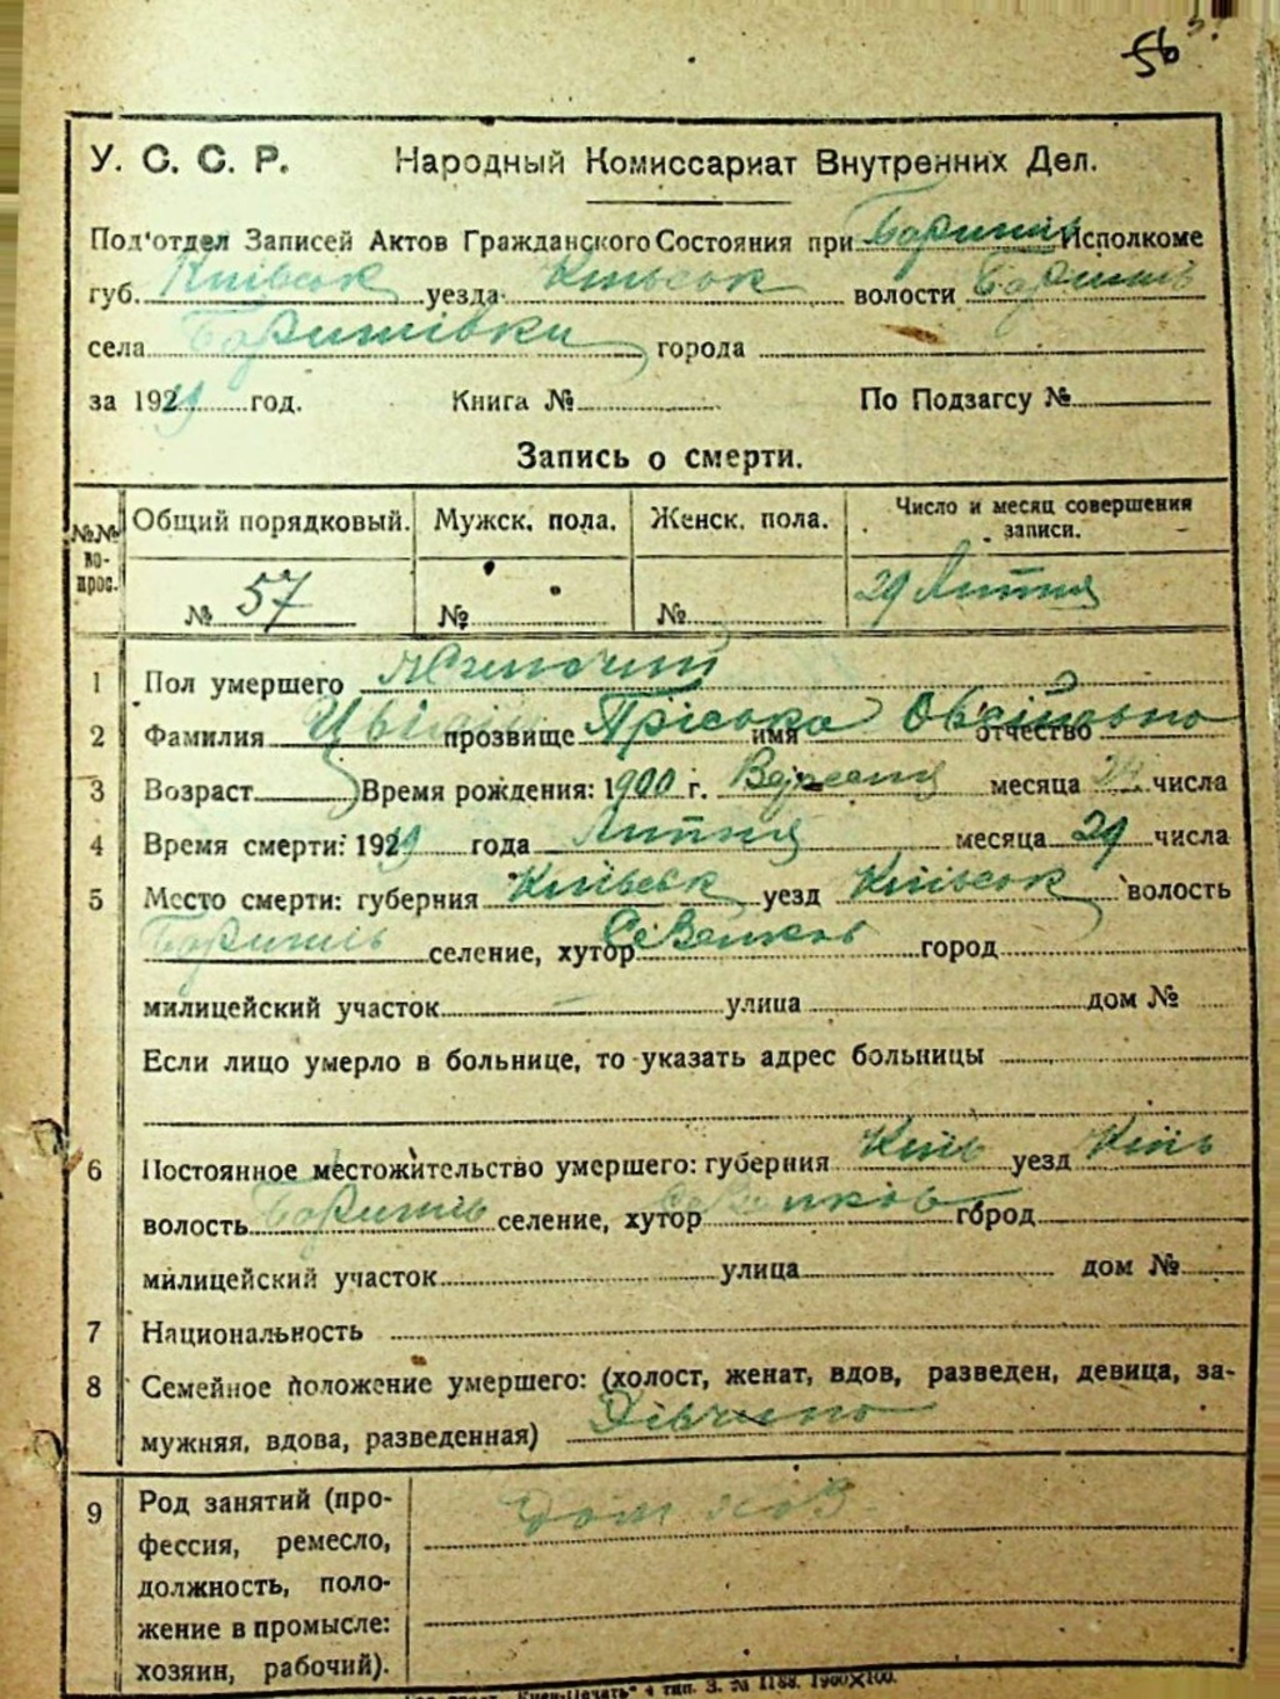 56
У. С. С. Р. Народный Комиссариат Внутренних Дел.
Под'отдел Записей Актов Гражданского Состояния при Баришів Исполкоме
губ. Київськ уезда Київськ волости Баришів
села Баришівки города
за 192 год. Книга № По Подзагсу №
Запись о смерти.
№№ вопрос. Общий порядковый. Мужск. пола. Женск. пола. Число и месяц совершения записи.
№ 57 № № 29 Липня
1 Пол умершего Жіночий
2 Фамилия прозвище Пріська имя отчество
3 Возраст Время рождения: 1900 г. месяца числа
4 Время смерти: 192 года Липня месяца 29 числа
5 Место смерти: губерния Київськ уезд Київськ волость
Баришів селение, хутор город
милицейский участок улица дом №
Если лицо умерло в больнице, то указать адрес больницы
6 Постоянное местожительство умершего: губерния Київ уезд Київ
волость Баришів селение, хутор город
милицейский участок улица дом №
7 Национальность
8 Семейное положение умершего: (холост, женат, вдов, разведен, девица, за-
мужняя, вдова, разведенная) Дівчина
9 Род занятий (про-
фессия, ремесло,
должность, поло-
жение в промысле:
хозяин, рабочий).
Дом хоз.
"Киев-Печать" 4 тип. З. № 1188. 1900×100.